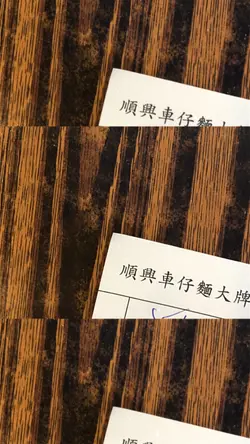 順興車仔麵大
順興車仔麵大牌
順興車仔麵